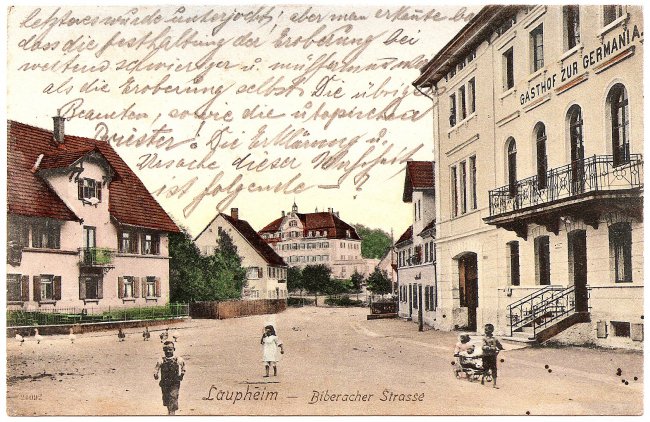 letzteres wurde unterjocht; aber man erkannte ba
dass die festhaltung der Eroberung bei
weitem schwieriger u. mussfer
als die Eroberung selbst. Die übrigen
Beamten, sowie die utopischen
Priester! Die Erklärung u.
Ursache dieser
ist folgende — ?
GASTHOF ZUR GERMANIA.
Laupheim — Biberacher Strasse